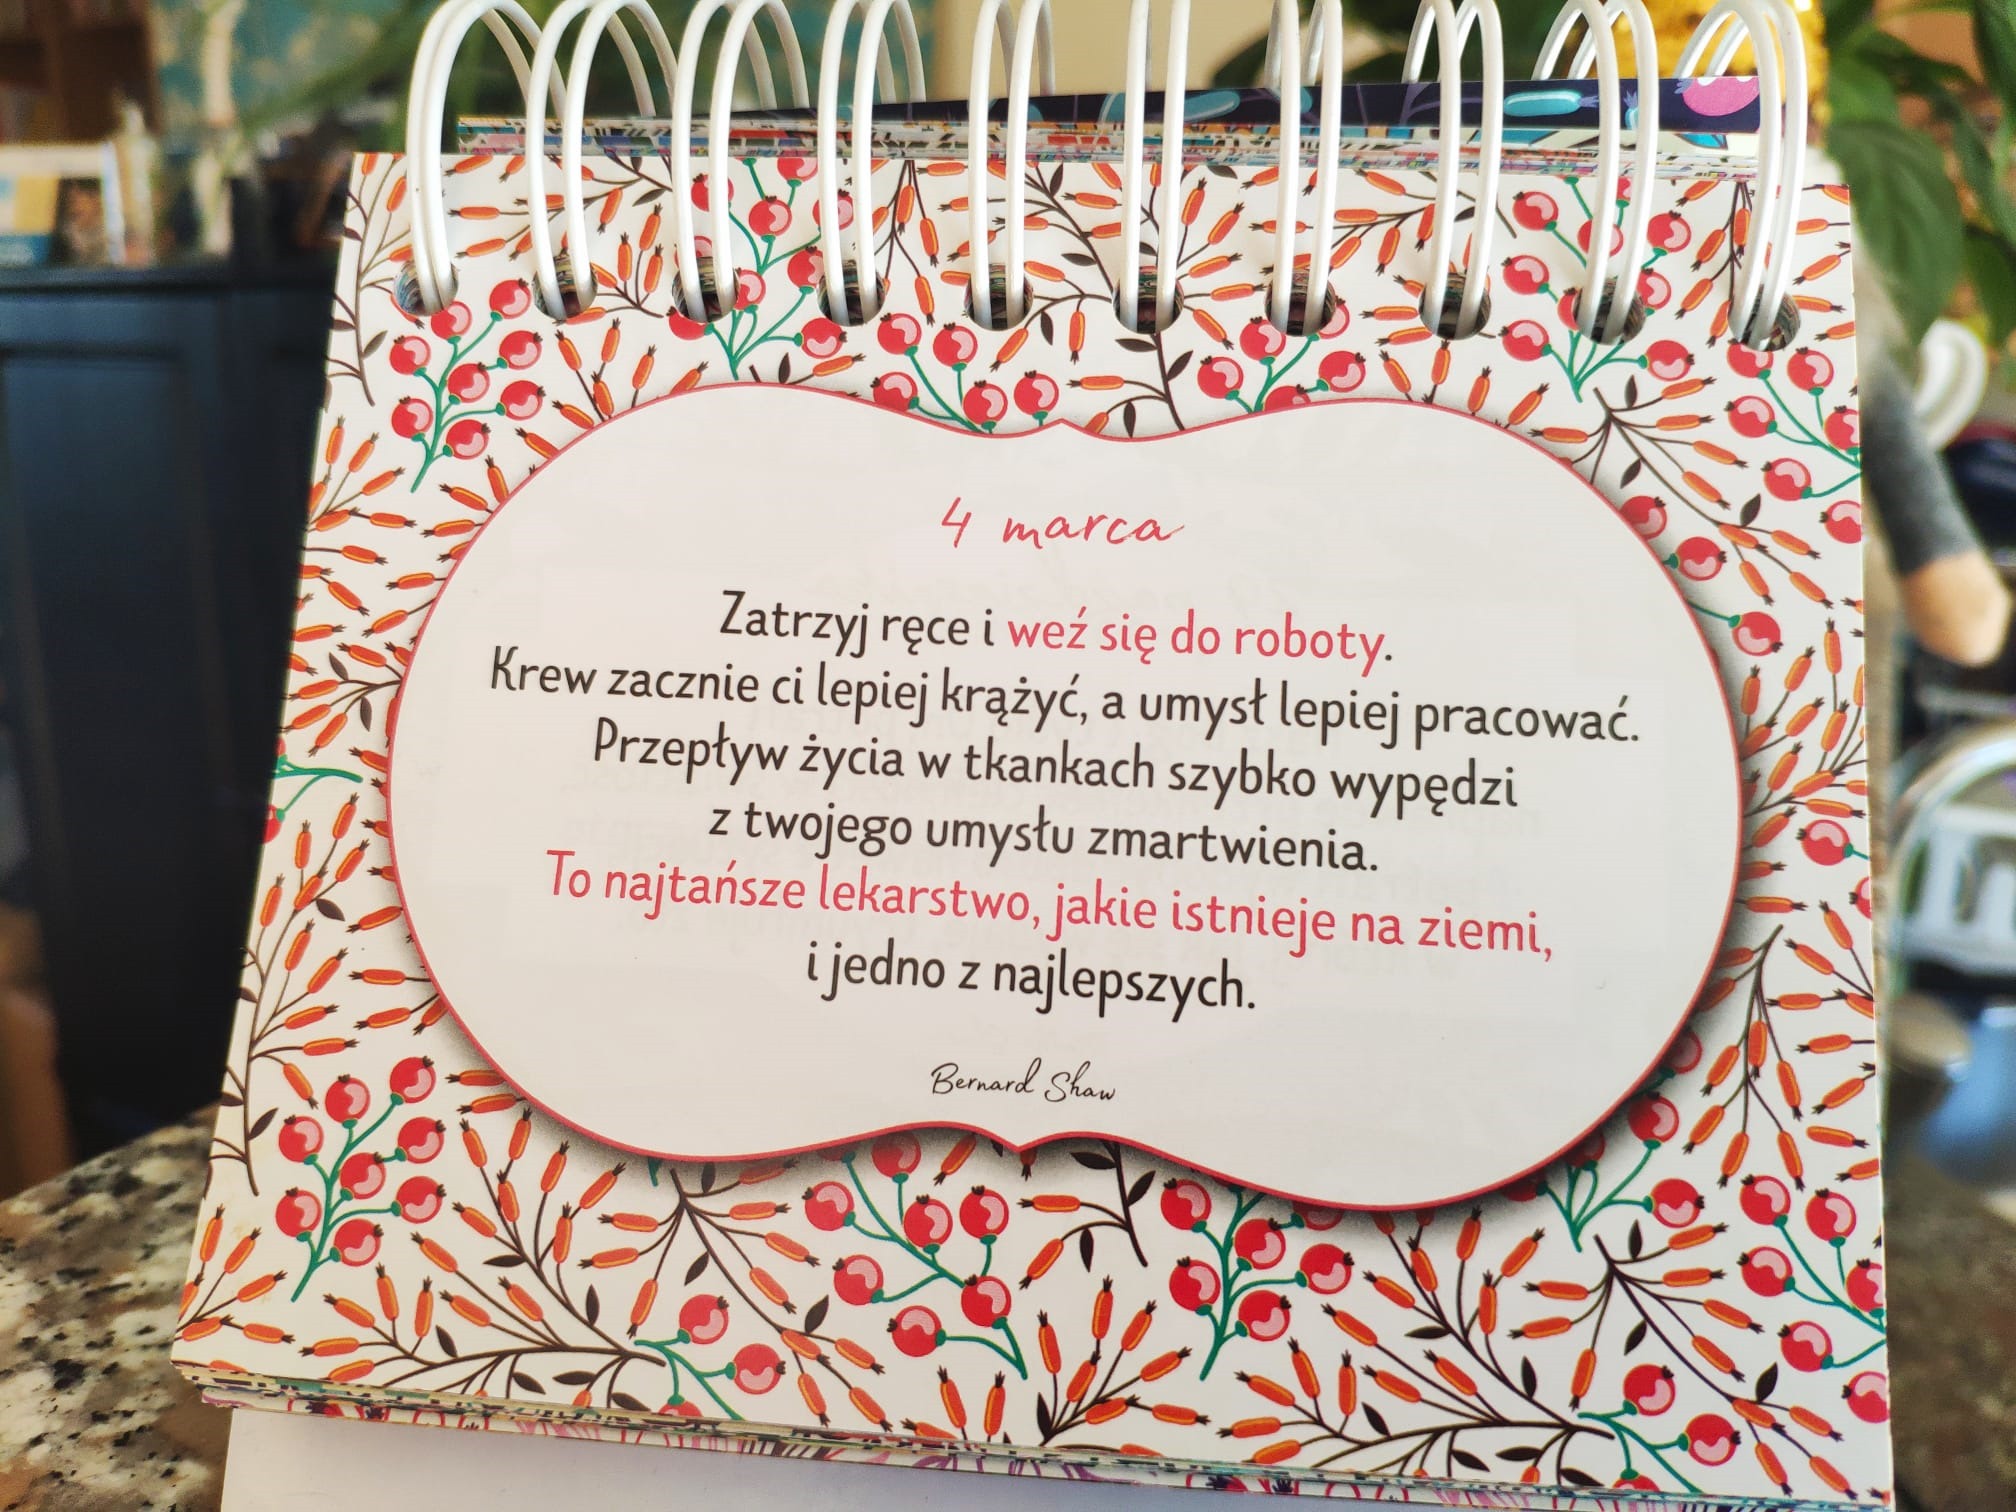 4 marca
Zatrzyj ręce i weź się do roboty.
Krew zacznie ci lepiej krążyć, a umysł lepiej pracować.
Przepływ życia w tkankach szybko wypędzi
z twojego umysłu zmartwienia.
To najtańsze lekarstwo, jakie istnieje na ziemi,
i jedno z najlepszych.
Bernard Shaw